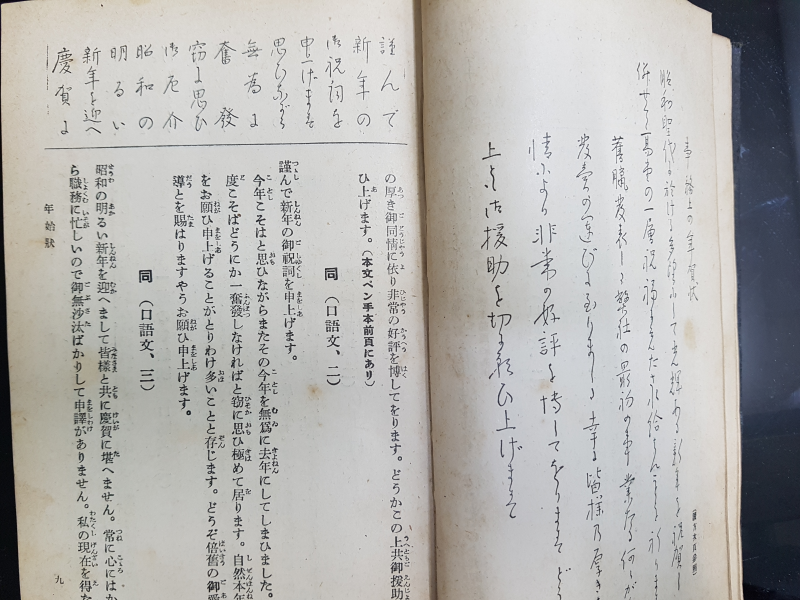 事務上の年賀状
昭和聖代に於ける多望にして光輝ある新年を祝賀し
併せて萬事の一層祝福に充たされ給はんことを祈りま
舊臘發表した弊社の最初の事業たる何々が
發賣の運びに至りました幸に皆様の厚き
情により非常の好評を博してをりますどう
上とも御援助を切に願ひ上げます
謹んで
新年の
御祝詞を
申上げます
思ひながら
無為に
奮發
窃に思ひ
御厄介
昭和の
明るい
新年を迎へ
慶賀に
の厚き御同情に依り非常の好評を博してをります。どうかこの上共御援助
ひ上げます。(本文ペン手本前頁にあり)
同(口語文、二)
謹んで新年の御祝詞を申上げます。
今年こそはと思ひながらまたその今年を無爲に去年にしてしまひました。
度こそばどうにか一奮發しなければと窃に思ひ極めて居ります。自然本年
をお願ひ申上げることがとりわけ多いことと存じます。どうぞ倍舊の御愛
導とを賜はりますやうお願ひ申上げます。
同(口語文、三)
昭和の明るい新年を迎へまして皆様と共に慶賀に堪へません。常に心にはか
ら職務に忙しいので御無沙汰ばかりして申譯がありません。私の現在を得た
年始狀
九